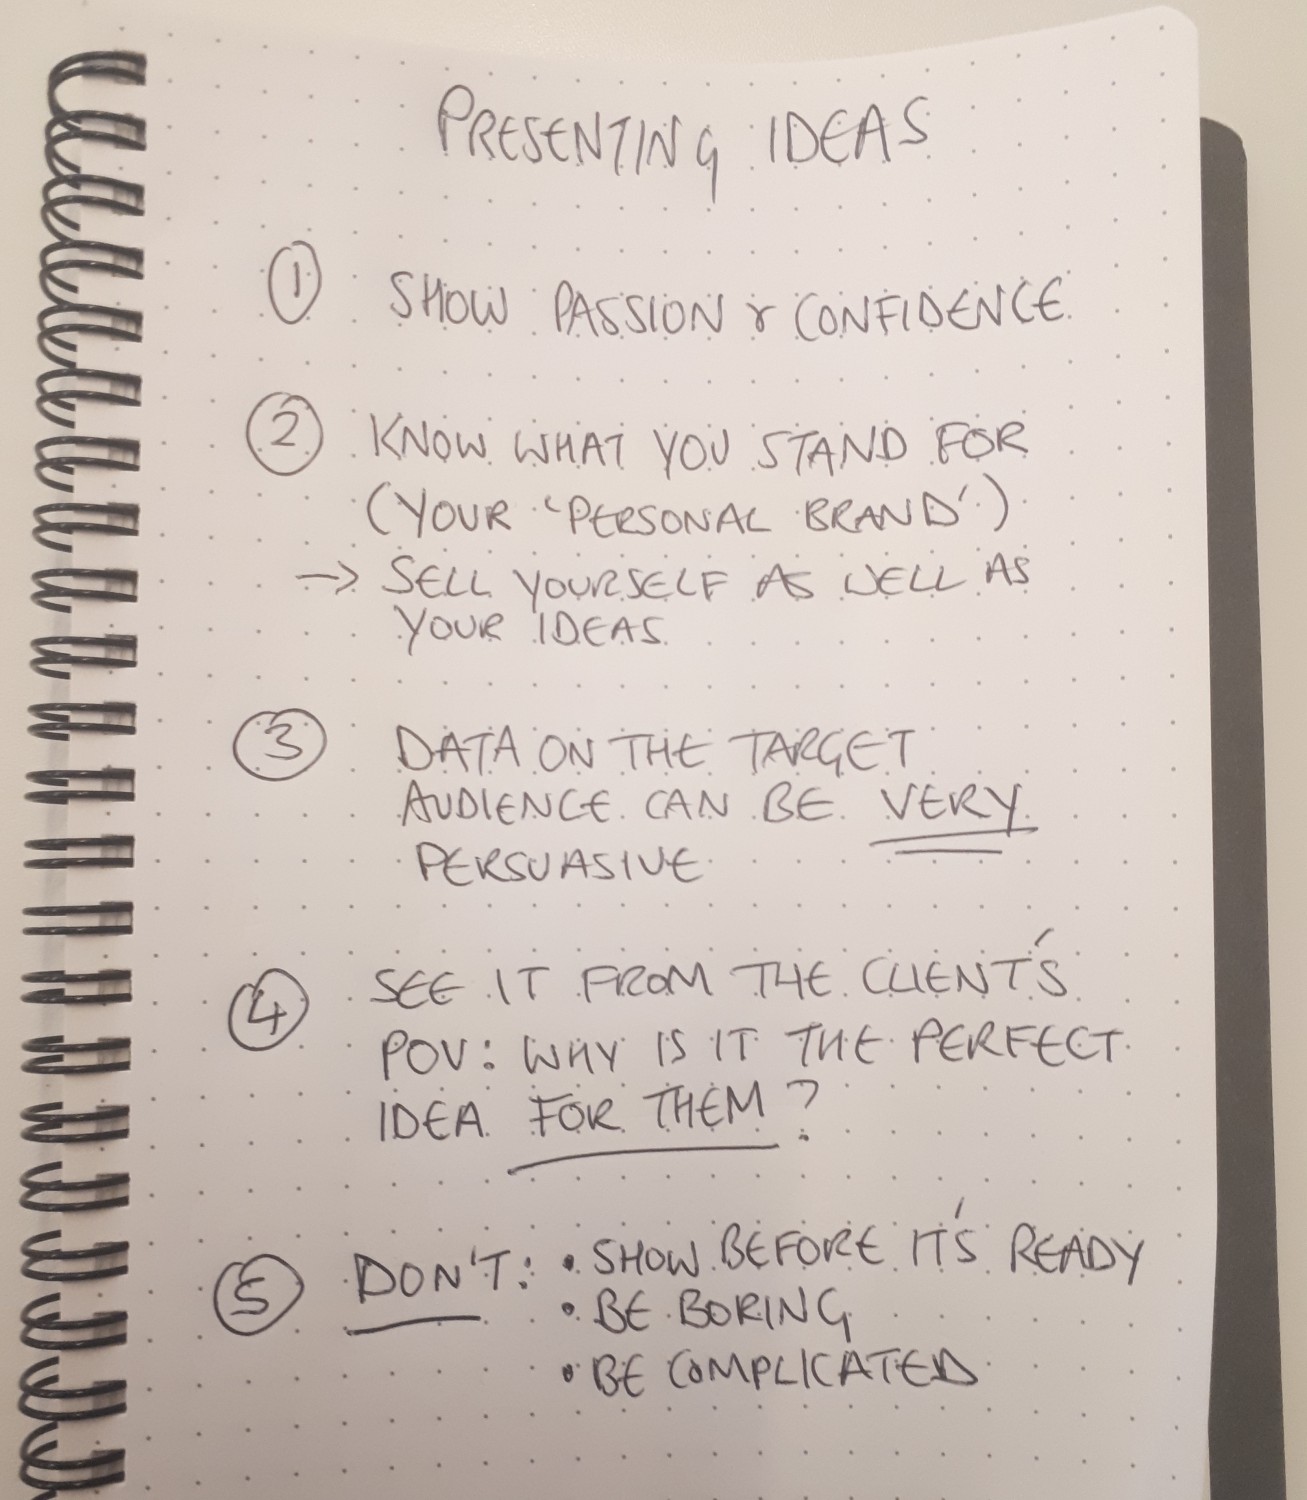 PRESENTING IDEAS
1 SHOW PASSION & CONFIDENCE
2 KNOW WHAT YOU STAND FOR
(YOUR 'PERSONAL BRAND')
→ SELL YOURSELF AS WELL AS
YOUR IDEAS
3 DATA ON THE TARGET
AUDIENCE CAN BE VERY
PERSUASIVE
4 SEE IT FROM THE CLIENT'S
POV: WHY IS IT THE PERFECT
IDEA FOR THEM?
5 DON'T: • SHOW BEFORE IT'S READY
• BE BORING
• BE COMPLICATED